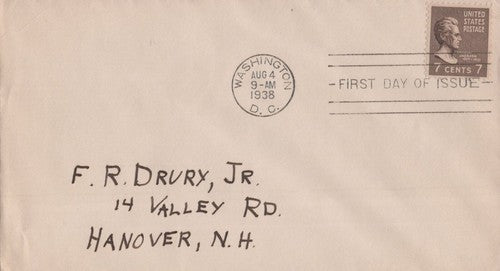 UNITED
STATES
POSTAGE
7 CENTS 7
WASHINGTON
AUG 4
9-AM
1938
D. C.
FIRST DAY OF ISSUE
F. R. DRURY, JR.
14 VALLEY RD.
HANOVER, N.H.